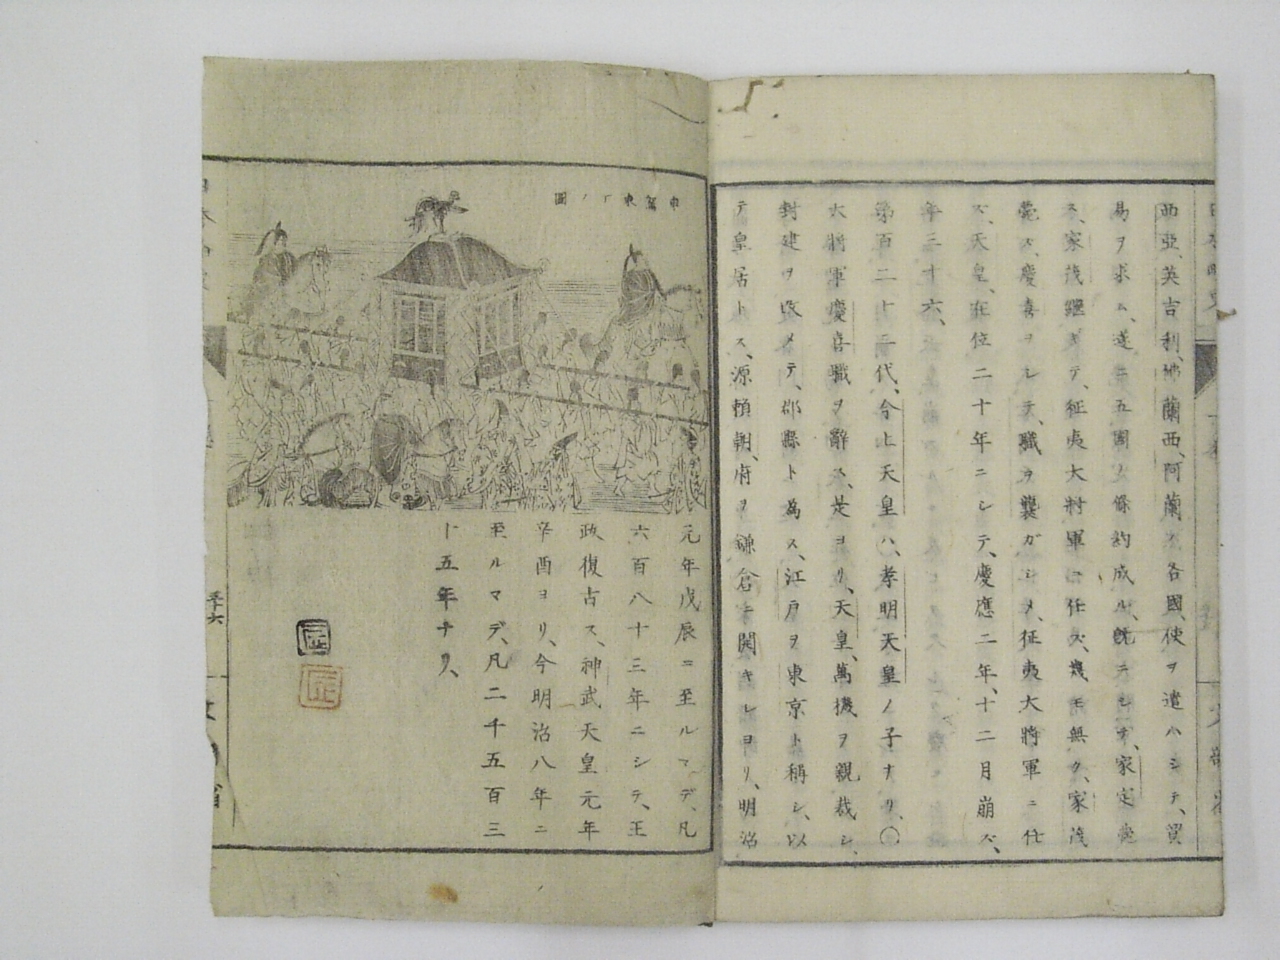 西亞、英吉利、佛蘭西、阿蘭ノ各國、使ヲ遣ハシテ、貿
易ヲ求ム、遂ニ五國ノ條約成ル、旣ニシテ、家定薨
ス、家茂繼ギテ、征夷大將軍ニ任ズ、幾モ無ク、家茂
薨ズ、慶喜ヲシテ、職ヲ襲ガシメ、征夷大將軍ニ任
ズ、天皇、在位二十年ニシテ、慶應二年、十二月崩ズ、
年三十六、
第百二十二代、今上天皇ハ、孝明天皇ノ子ナリ、〇
大將軍慶喜職ヲ辭ス、是ヨリ、天皇、萬機ヲ親裁シ、
封建ヲ改メテ、郡縣ト爲ス、江戸ヲ東京ト稱シ、以
テ皇居トス、源賴朝、府ヲ鎌倉ニ開キシヨリ、明治
車駕東下ノ圖
元年戊辰ニ至ルマデ、凡
六百八十三年ニシテ、王
政復古ス、神武天皇元年
辛酉ヨリ、今明治八年ニ
至ルマデ、凡二千五百三
十五年ナリ、
匠
匠
五十六